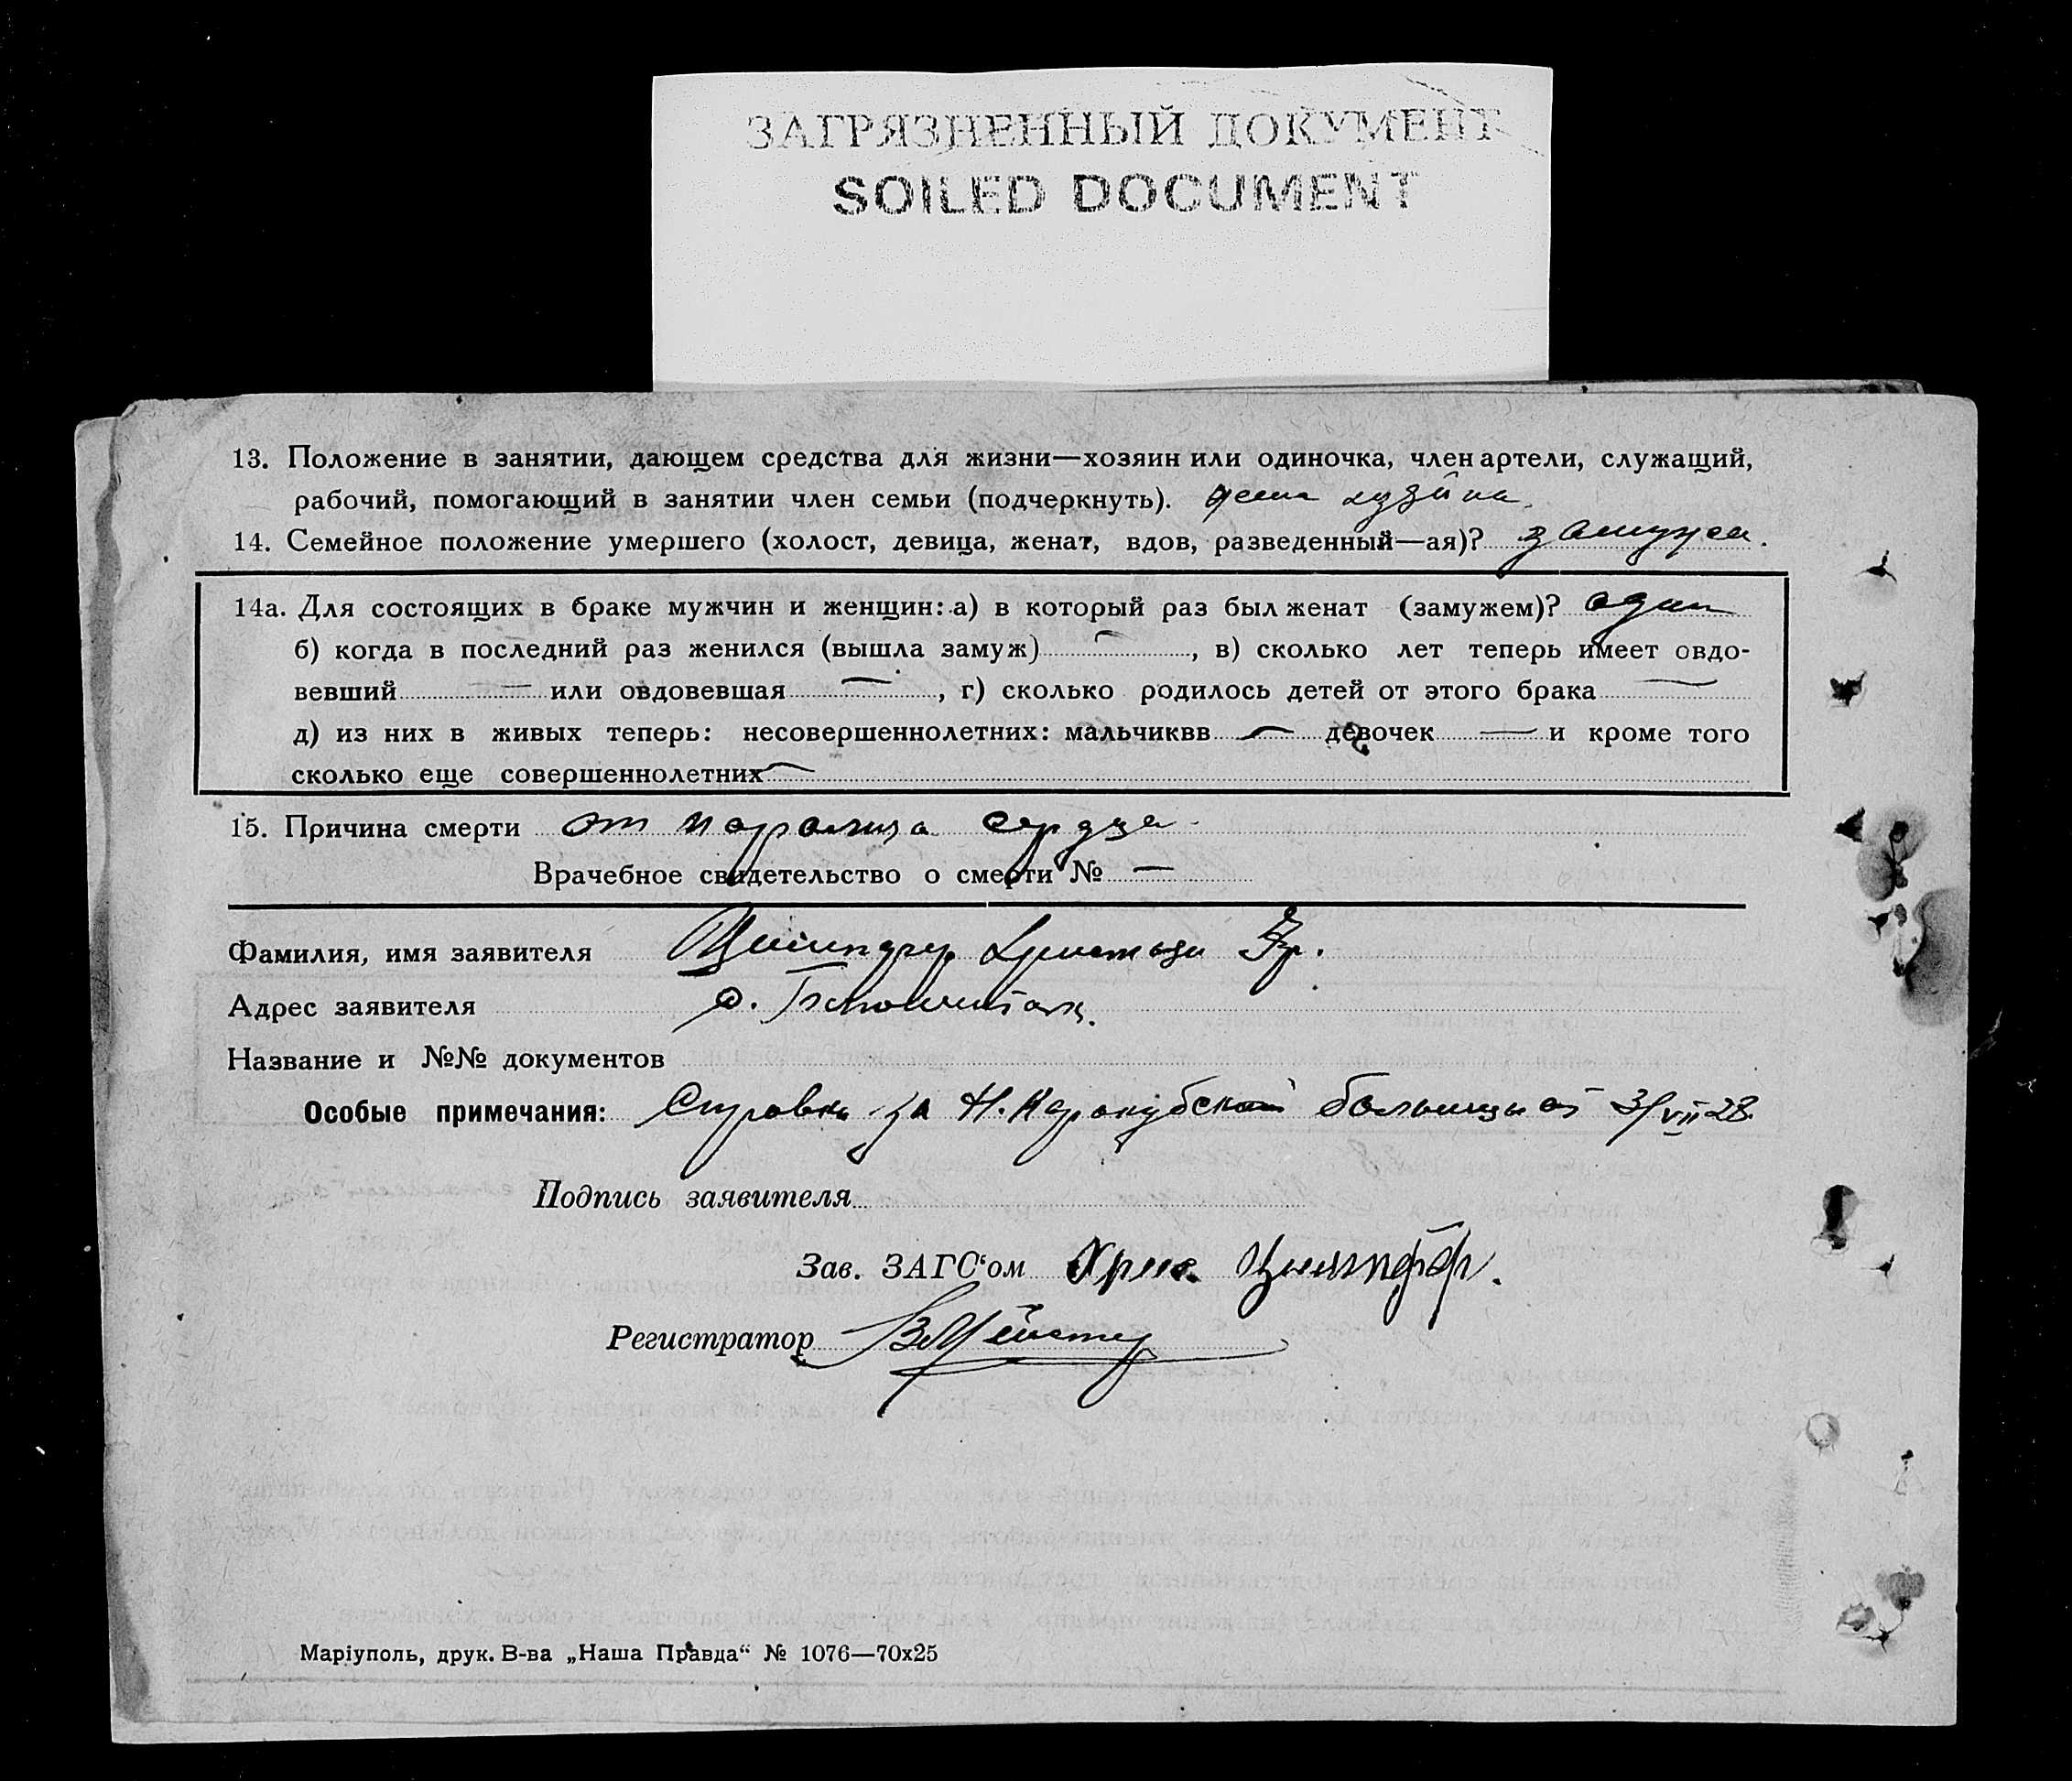 ЗАГРЯЗНЕННЫЙ ДОКУМЕНТ
SOILED DOCUMENT
13. Положение в занятии, дающем средства для жизни—хозяин или одиночка, член артели, служащий,
рабочий, помогающий в занятии член семьи (подчеркнуть).
14. Семейное положение умершего (холост, девица, женат, вдов, разведенный—ая)? замужем.
14а. Для состоящих в браке мужчин и женщин: а) в который раз был женат (замужем)? один
б) когда в последний раз женился (вышла замуж) —, в) сколько лет теперь имеет овдо-
вевший — или овдовевшая —, г) сколько родилось детей от этого брака —
д) из них в живых теперь: несовершеннолетних: мальчиквв — девочек — и кроме того
сколько еще совершеннолетних —
15. Причина смерти от паралича сердца
Врачебное свидетельство о смерти № —
Фамилия, имя заявителя
Адрес заявителя
Название и №№ документов
Особые примечания: Справка больницы от 3/VII 28
Подпись заявителя
Зав. ЗАГС‘ом
Регистратор
Маріуполь, друк. В-ва „Наша Правда“ № 1076—70х25